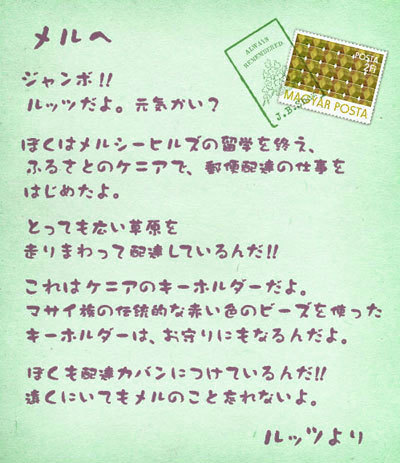 メルへ
ALWAYS
REMEMBERED
POSTA
2Ft
MAGYAR POSTA
ジャンボ!!
ルッツだよ。元気かい?
ぼくはメルシーヒルズの留学を終え、
ふるさとのケニアで、郵便配達の仕事を
はじめたよ。
とっても広い草原を
走りまわって配達しているんだ!!
これはケニアのキーホルダーだよ。
マサイ族の伝統的な赤い色のビーズを使った
キーホルダーは、お守りにもなるんだよ。
ぼくも配達カバンにつけているんだ!!
遠くにいてもメルのこと忘れないよ。
ルッツより